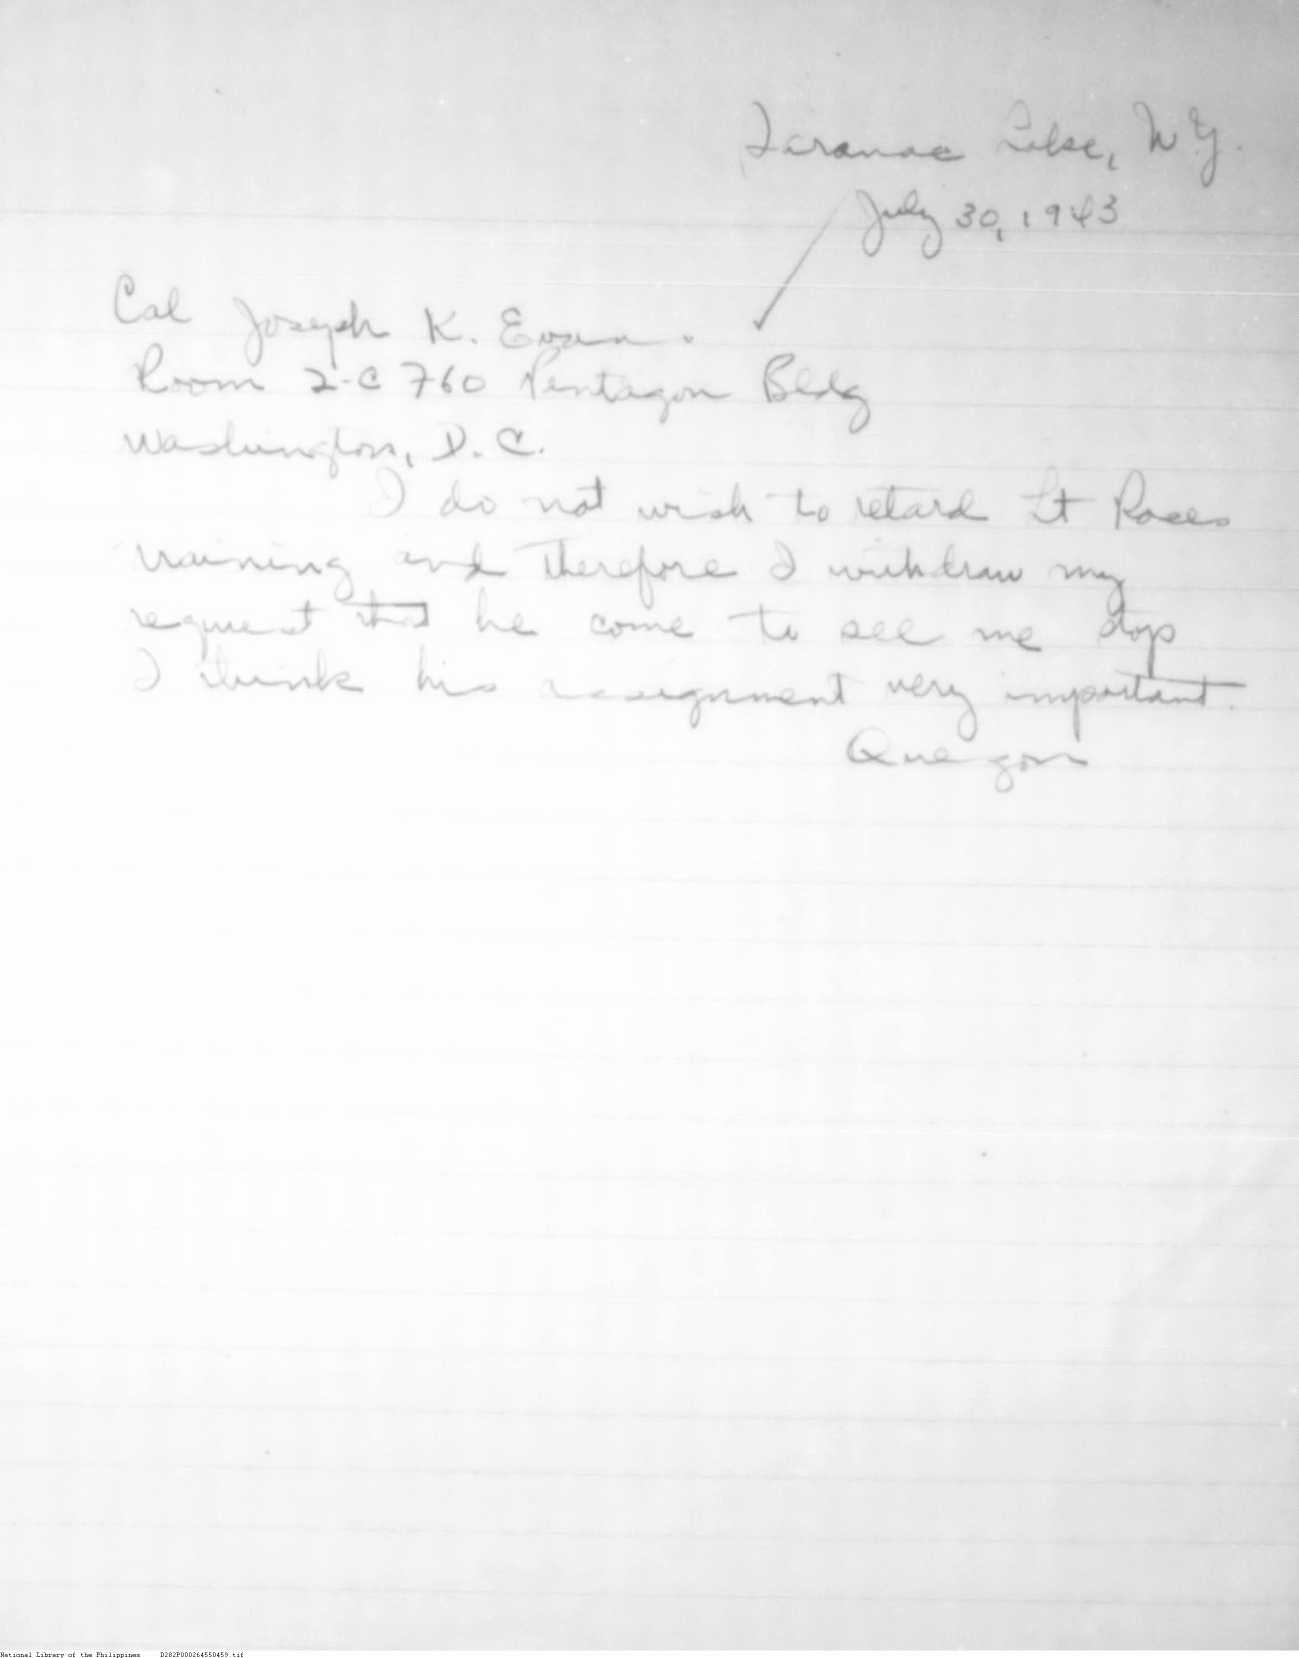 Saranac Lake, N.Y.
July 30, 1943
Col Joseph K. Evans.
Room 2-C 760 Pentagon Bldg
Washington, D.C.
I do not wish to retard Lt Roces
training and therefore I withdraw my
request that he come to see me stop
I think his assignment very important.
Quezon
National Library of the Philippines D282P000264550459.tif